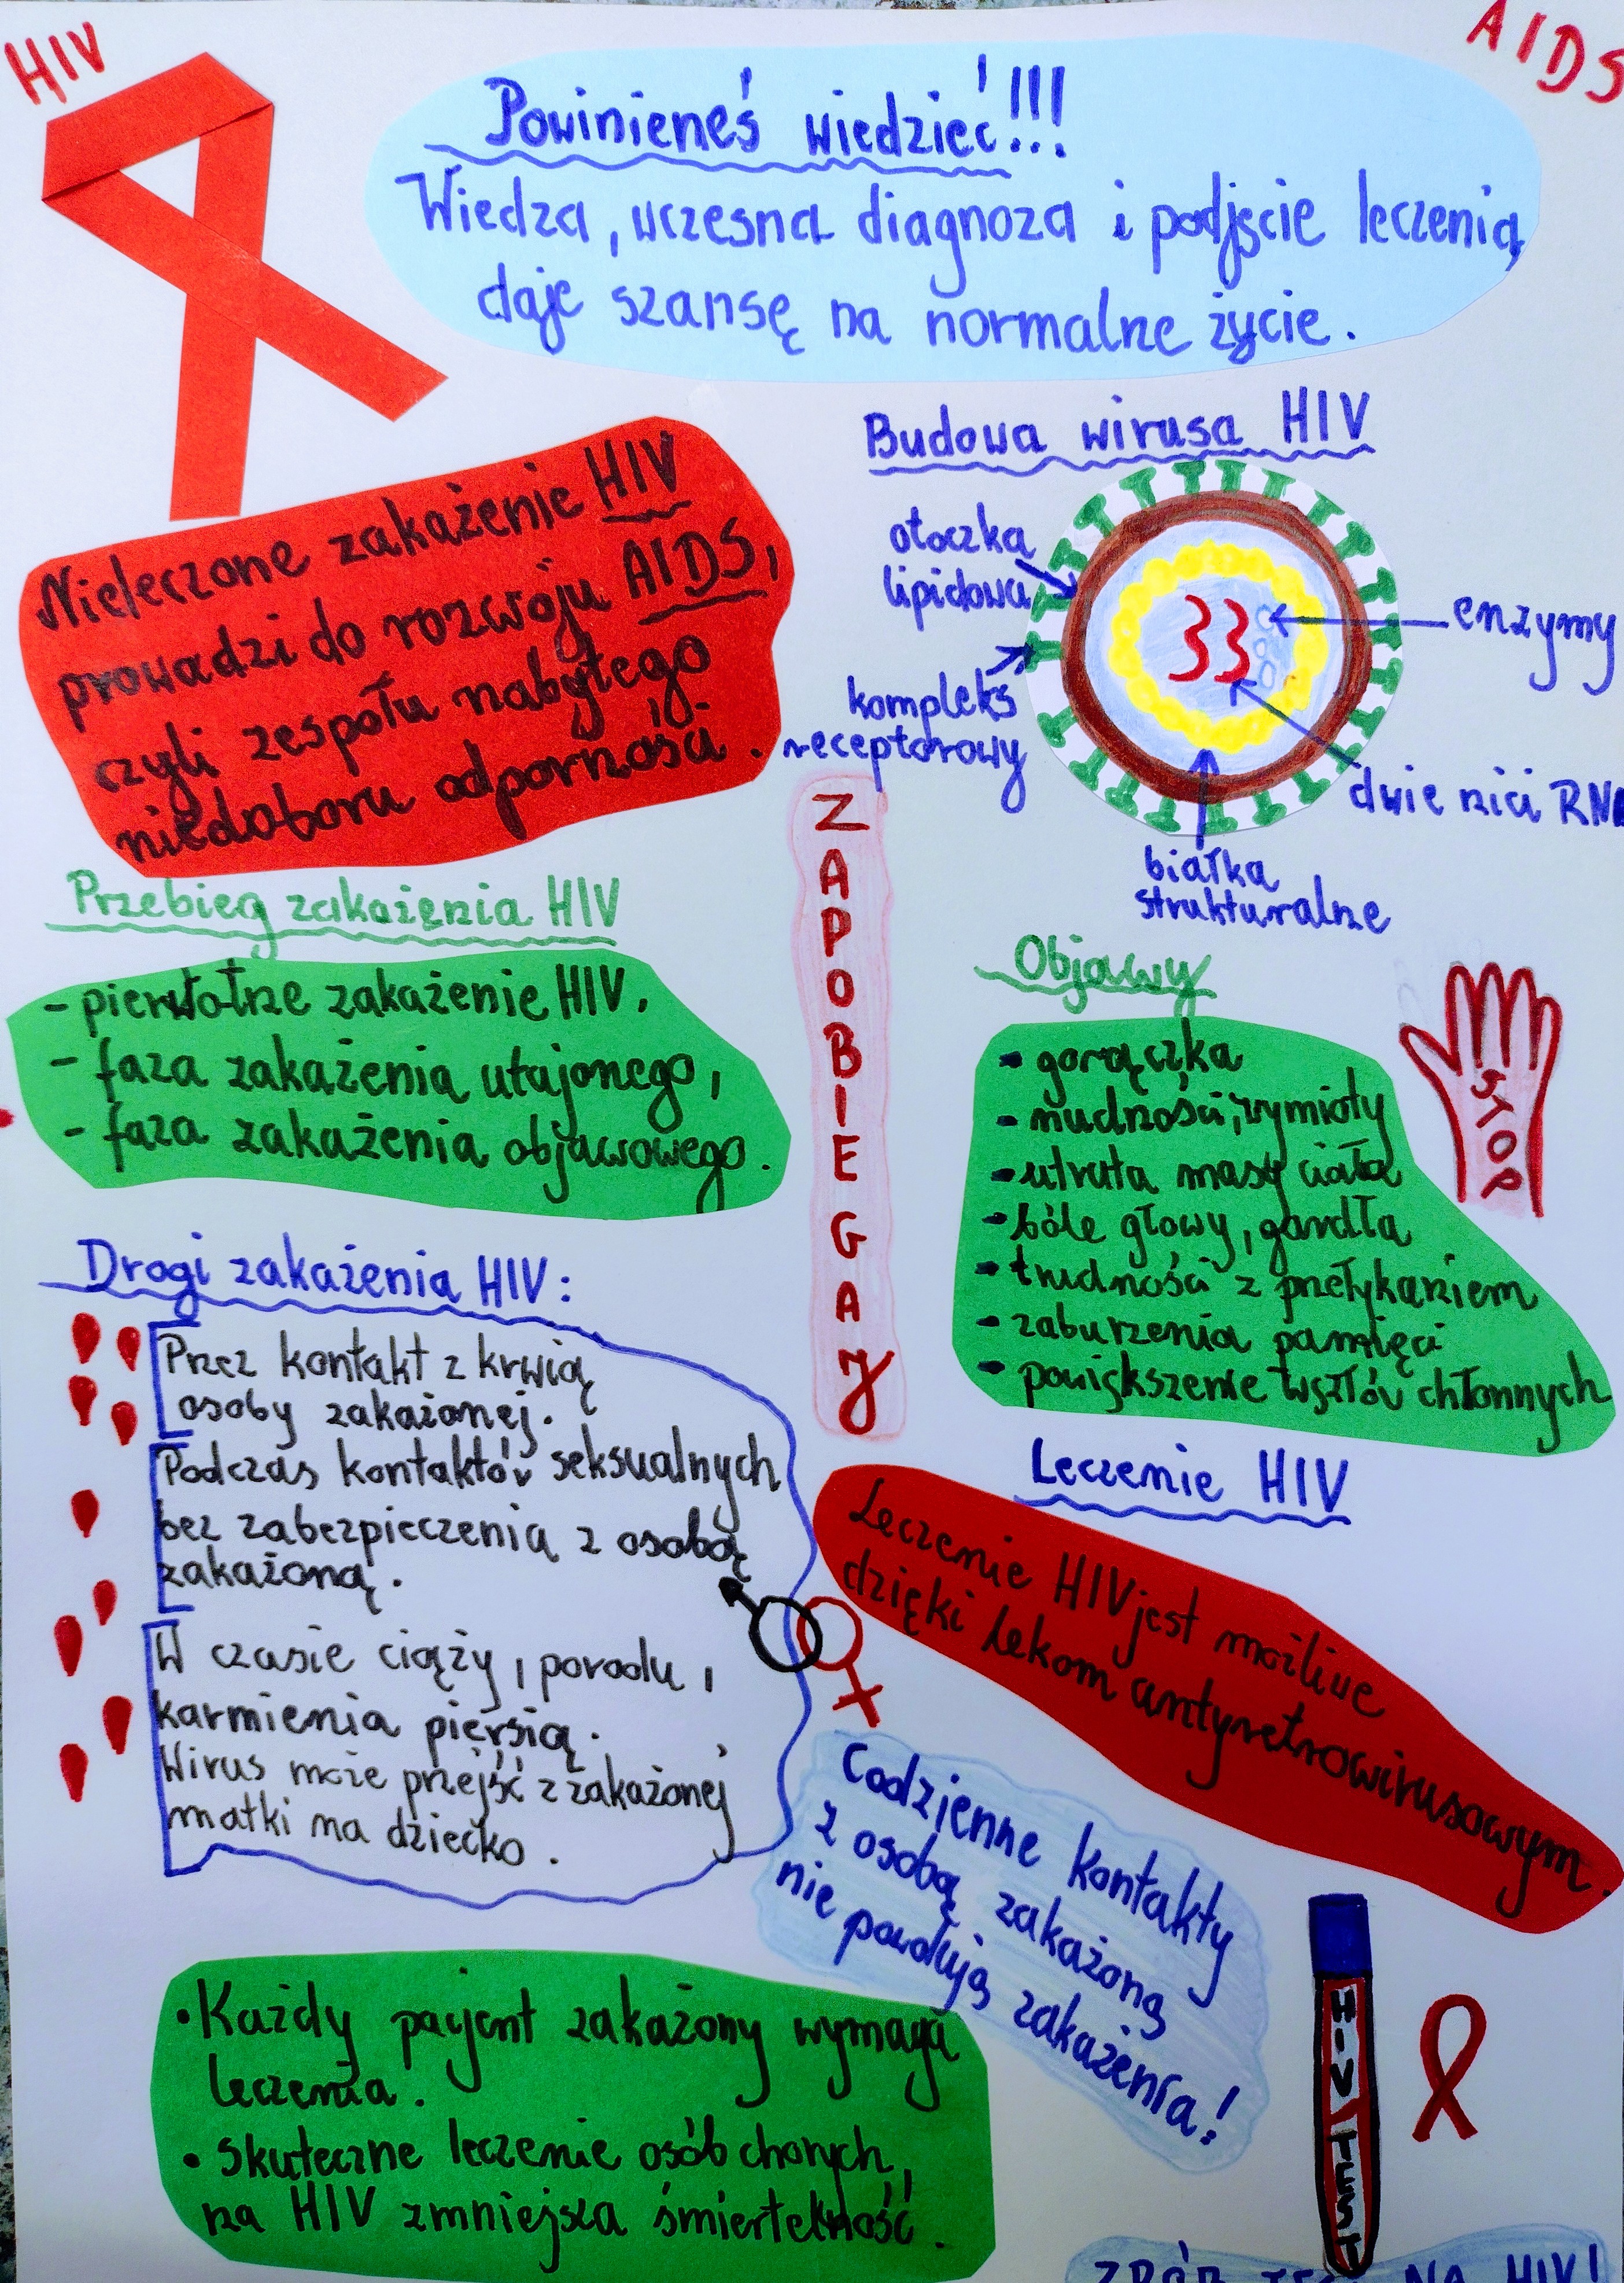 HIV
AIDS
Powinieneś wiedzieć!!!
Wiedza, wczesna diagnoza i podjęcie leczenia
daje szansę na normalne życie.
Nieleczone zakażenie HIV
prowadzi do rozwoju AIDS,
czyli zespołu nabytego
niedoboru odporności.
Budowa wirusa HIV
otoczka
lipidowa
enzymy
kompleks
receptorowy
dwie nici RNA
białka
strukturalne
Przebieg zakażenia HIV
- pierwotne zakażenie HIV,
- faza zakażenia utajonego,
- faza zakażenia objawowego.
ZAPOBIEGAJ
Objawy
- gorączka
- nudności, wymioty
- utrata masy ciała
- bóle głowy, gardła
- trudności z przełykaniem
- zaburzenia pamięci
- powiększenie węzłów chłonnych
STOP
Drogi zakażenia HIV:
Przez kontakt z krwią
osoby zakażonej.
Podczas kontaktów seksualnych
bez zabezpieczenia z osobą
zakażoną.
W czasie ciąży, porodu,
karmienia piersią.
Wirus może przejść z zakażonej
matki na dziecko.
Leczenie HIV
Leczenie HIV jest możliwe
dzięki lekom antyretrowirusowym.
Codzienne kontakty
z osobą zakażoną
nie powodują zakażenia!
• Każdy pacjent zakażony wymaga
leczenia.
• Skuteczne leczenie osób chorych,
na HIV zmniejsza śmiertelność.
HIV TEST
ZRÓB TEST NA HIV!